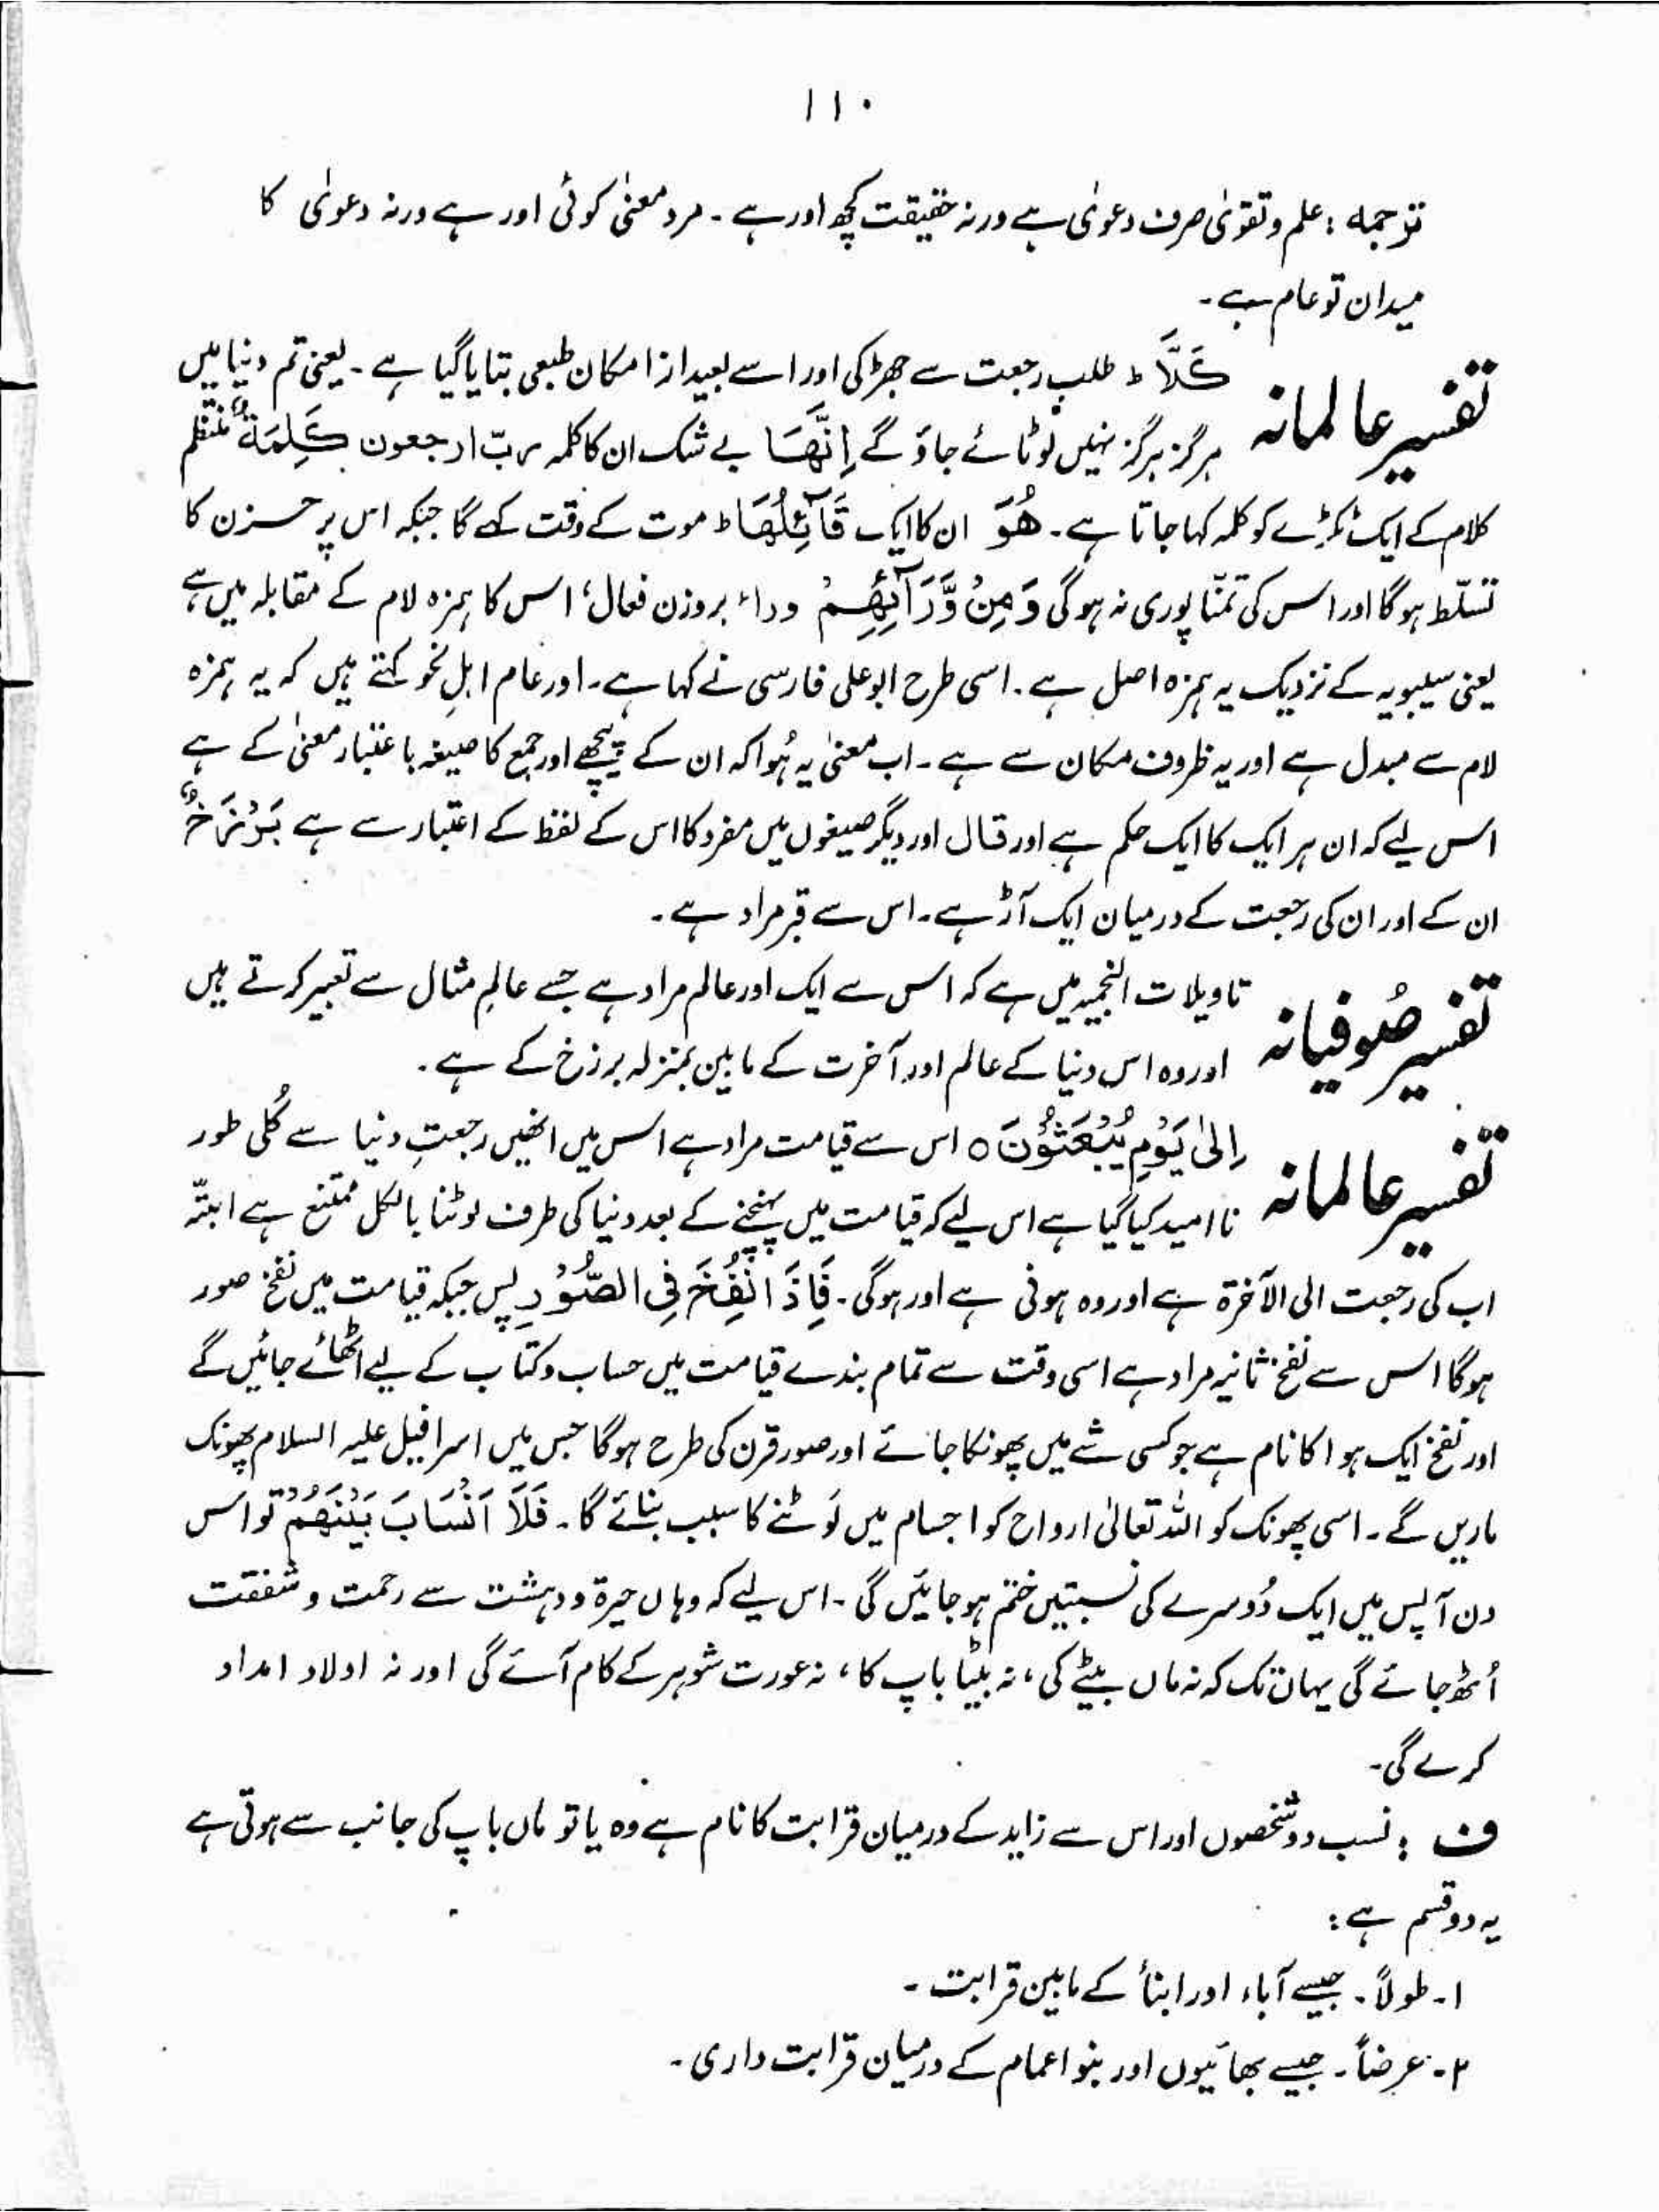 ۱۱۰
ترجمہ : علم و تقویٰ صرف دعویٰ ہے ورنہ حقیقت کچھ اور ہے ۔ مرد معنیٰ کوئی اور ہے ورنہ دعویٰ کا
میدان تو عام ہے ۔
تفسیر عالمانہ کَلَّا ؕ طلب رجعت سے جھڑکی اور اسے بعید از امکان طبعی بتایا گیا ہے ۔ یعنی تم دنیا میں
ہرگز ہرگز نہیں لوٹائے جاؤ گے اِنَّھَا بے شک ان کا کلمہ ربّ ارجعون کَلِمَۃٌ منتظم
کلام کے ایک ٹکڑے کو کلمہ کہا جاتا ہے ۔ ھُوَ ان کا ایک قَآئِلُھَا ؕ موت کے وقت کہے گا جبکہ اس پر حسزن کا
تسلّط ہوگا اور اس کی تمنّا پوری نہ ہوگی وَ مِنْ وَّرَآئِھِمْ وراء بروزن فعال، اس کا ہمزہ لام کے مقابلہ میں ہے
یعنی سیبویہ کے نزدیک یہ ہمزہ اصل ہے ۔ اسی طرح ابو علی فارسی نے کہا ہے ۔ اور عام اہلِ نحو کہتے ہیں کہ یہ ہمزہ
لام سے مبدل ہے اور یہ ظروف مکان سے ہے ۔ اب معنیٰ یہ ہُوا کہ ان کے پیچھے اور جمع کا صیغہ باعتبار معنیٰ کے ہے
اس لیے کہ ان ہر ایک کا ایک حکم ہے اور قال اور دیگر صیغوں میں مفرد کا اس کے لفظ کے اعتبار سے ہے بَرْزَخٌ
ان کے اور ان کی رجعت کے درمیان ایک آڑ ہے ۔ اس سے قبر مراد ہے ۔
تفسیر صُوفیانہ تاویلات النجمیہ میں ہے کہ اس سے ایک اور عالم مراد ہے جسے عالمِ مثال سے تعبیر کرتے ہیں
اور وہ اس دنیا کے عالم اور آخرت کے مابین بمنزلہ برزخ کے ہے ۔
تفسیر عالمانہ اِلیٰ یَوْمِ یُبْعَثُوْنَ ○ اس سے قیامت مراد ہے اس میں انھیں رجعتِ دنیا سے کُلی طور
نا امید کیا گیا ہے اس لیے کہ قیامت میں پہنچنے کے بعد دنیا کی طرف لوٹنا بالکل ممتنع ہے ابتّہ
اب کی رجعت الی الآخرۃ ہے اور وہ ہونی ہے اور ہوگی ۔ فَاِذَا نُفِخَ فِی الصُّوْرِ پس جبکہ قیامت میں نفخ صور
ہوگا اس سے نفخۂ ثانیہ مراد ہے اسی وقت سے تمام بندے قیامت میں حساب و کتاب کے لیے اٹھائے جائیں گے
اور نفخ ایک ہوا کا نام ہے جو کسی شے میں پھونکا جائے اور صور قرن کی طرح ہوگا جس میں اسرافیل علیہ السلام پھونک
ماریں گے ۔ اسی پھونک کو اللہ تعالیٰ ارواح کو اجسام میں لَوٹنے کا سبب بنائے گا ۔ فَلَآ اَنْسَابَ بَیْنَھُمْ تو اس
دن آپس میں ایک دُوسرے کی نسبتیں ختم ہوجائیں گی ۔ اس لیے کہ وہاں حیرۃ و دہشت سے رحمت و شفقت
اُٹھ جائے گی یہاں تک کہ نہ ماں بیٹے کی ، نہ بیٹا باپ کا ، نہ عورت شوہر کے کام آئے گی اور نہ اولاد امداد
کرے گی ۔
ف : نسب دو شخصوں اور اس سے زاید کے درمیان قرابت کا نام ہے وہ یا تو ماں باپ کی جانب سے ہوتی ہے
یہ دو قسم ہے :
۱ ۔ طولاً ۔ جیسے آباء اور ابناً کے مابین قرابت ۔
۲ ۔ عرضاً ۔ جیسے بھائیوں اور بنو اعمام کے درمیان قرابت داری ۔